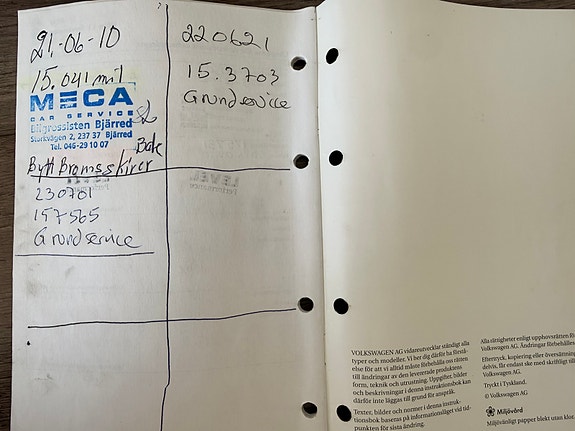 21-06-10
15.041 mil
MECA
CAR SERVICE
Bilgrossisten Bjärred
Storkvägen 2, 237 37 Bjärred
Tel. 046-29 10 07
Bytt Bromsskivor
230701
157565
Grundservice
220621
15.3703
Grundservice
VOLKSWAGEN AG vidareutvecklar ständigt alla
typer och modeller. Vi ber dig därför ha förstå-
else för att vi alltid måste förbehålla oss rätten
till ändringar av den levererade produktens
form, teknik och utrustning. Uppgifter, bilder
och beskrivningar i denna instruktionsbok kan
därför inte läggas till grund för anspråk.
Texter, bilder och normer i denna instruk-
tionsbok baseras på informationsläget vid tid-
punkten för sista ändring.
Alla rättigheter enligt upphovsrätten
Volkswagen AG. Ändringar förbehålles
Eftertryck, kopiering eller översättning
delvis, får endast ske med skriftligt till
Volkswagen AG.
Tryckt i Tyskland.
© Volkswagen AG
Miljövård
Miljövänligt papper blekt utan klor.